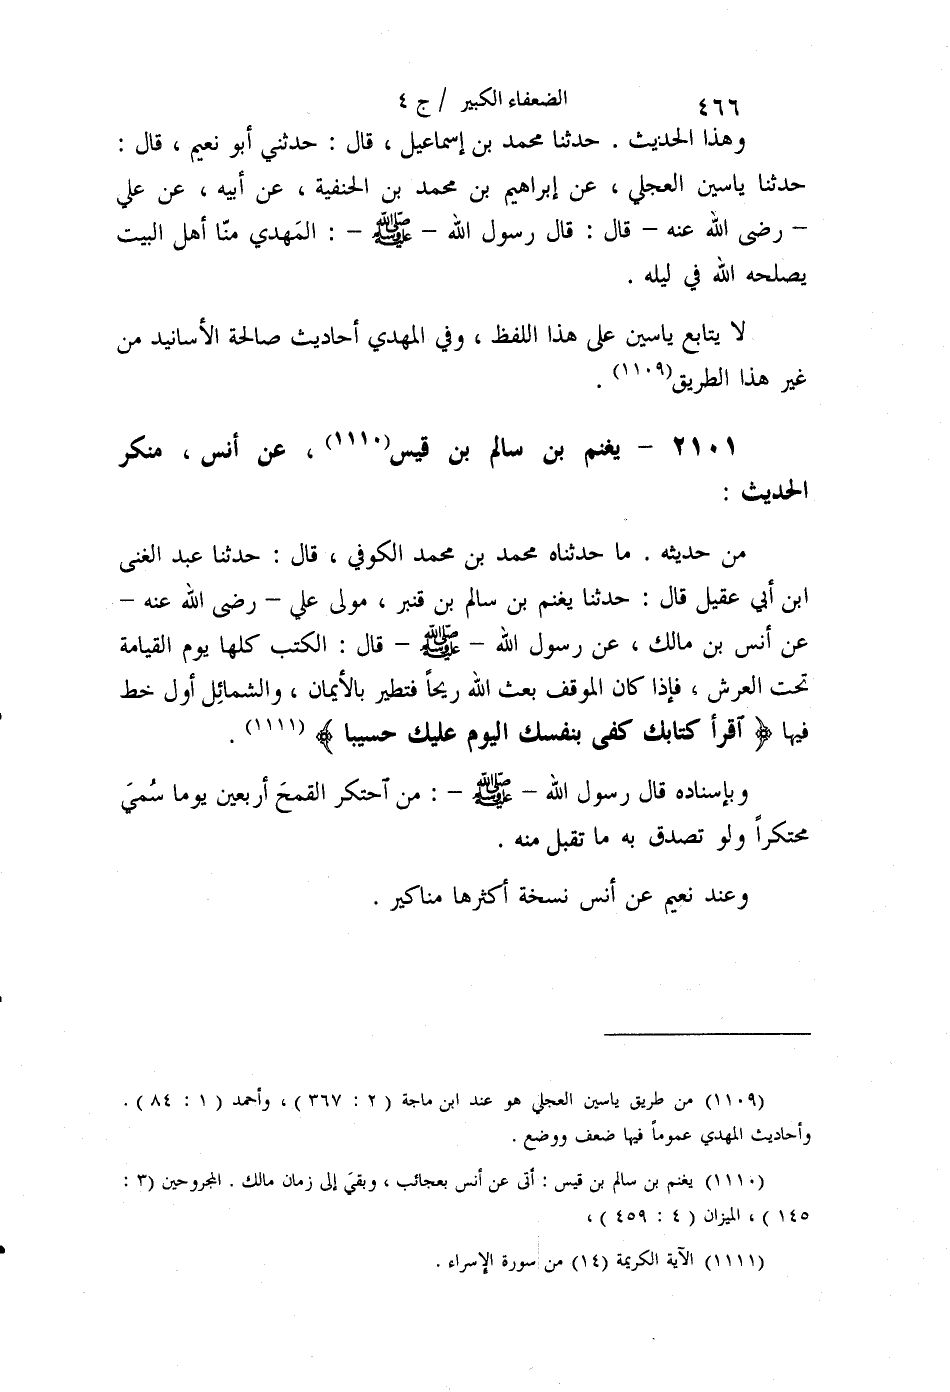 ٤٦٦ الضعفاء الكبير / ج ٤
وهذا الحديث . حدثنا محمد بن إسماعيل ، قال : حدثني أبو نعيم ، قال :
حدثنا ياسين العجلي ، عن إبراهيم بن محمد بن الحنفية ، عن أبيه ، عن علي
– رضى الله عنه – قال : قال رسول الله – ﷺ – : المَهدي منّا أهل البيت
يصلحه الله في ليله .
لا يتابع ياسين على هذا اللفظ ، وفي المهدي أحاديث صالحة الأسانيد من
غير هذا الطريق(١١٠٩) .
٢١٠١ – يغنم بن سالم بن قيس(١١١٠) ، عن أنس ، منكر
الحديث :
من حديثه . ما حدثناه محمد بن محمد الكوفي ، قال : حدثنا عبد الغنى
ابن أبي عقيل قال : حدثنا يغنم بن سالم بن قنبر ، مولى علي – رضى الله عنه –
عن أنس بن مالك ، عن رسول الله – ﷺ – قال : الكتب كلها يوم القيامة
تحت العرش ، فإذا كان الموقف بعث الله ريحاً فتطير بالأيمان ، والشمائِل أول خط
فيها ﴿ ٱقرأ كتابك كفى بنفسك اليوم عليك حسيبا ﴾ (١١١١) .
وبإسناده قال رسول الله – ﷺ – : من ٱحتكر القمحَ أربعين يوما سُميَ
محتكراً ولو تصدق به ما تقبل منه .
وعند نعيم عن أنس نسخة أكثرها مناكير .
(١١٠٩) من طريق ياسين العجلي هو عند ابن ماجة ( ٢ : ٣٦٧ ) ، وأحمد ( ١ : ٨٤ ) .
وأحاديث المهدي عموماً فيها ضعف ووضع .
(١١١٠) يغنم بن سالم بن قيس : أتى عن أنس بعجائب ، وبقيَ إلى زمان مالك . المجروحين (٣ :
١٤٥ ) ، الميزان ( ٤ : ٤٥٩ ) ،
(١١١١) الآية الكريمة (١٤) من سورة الإسراء .